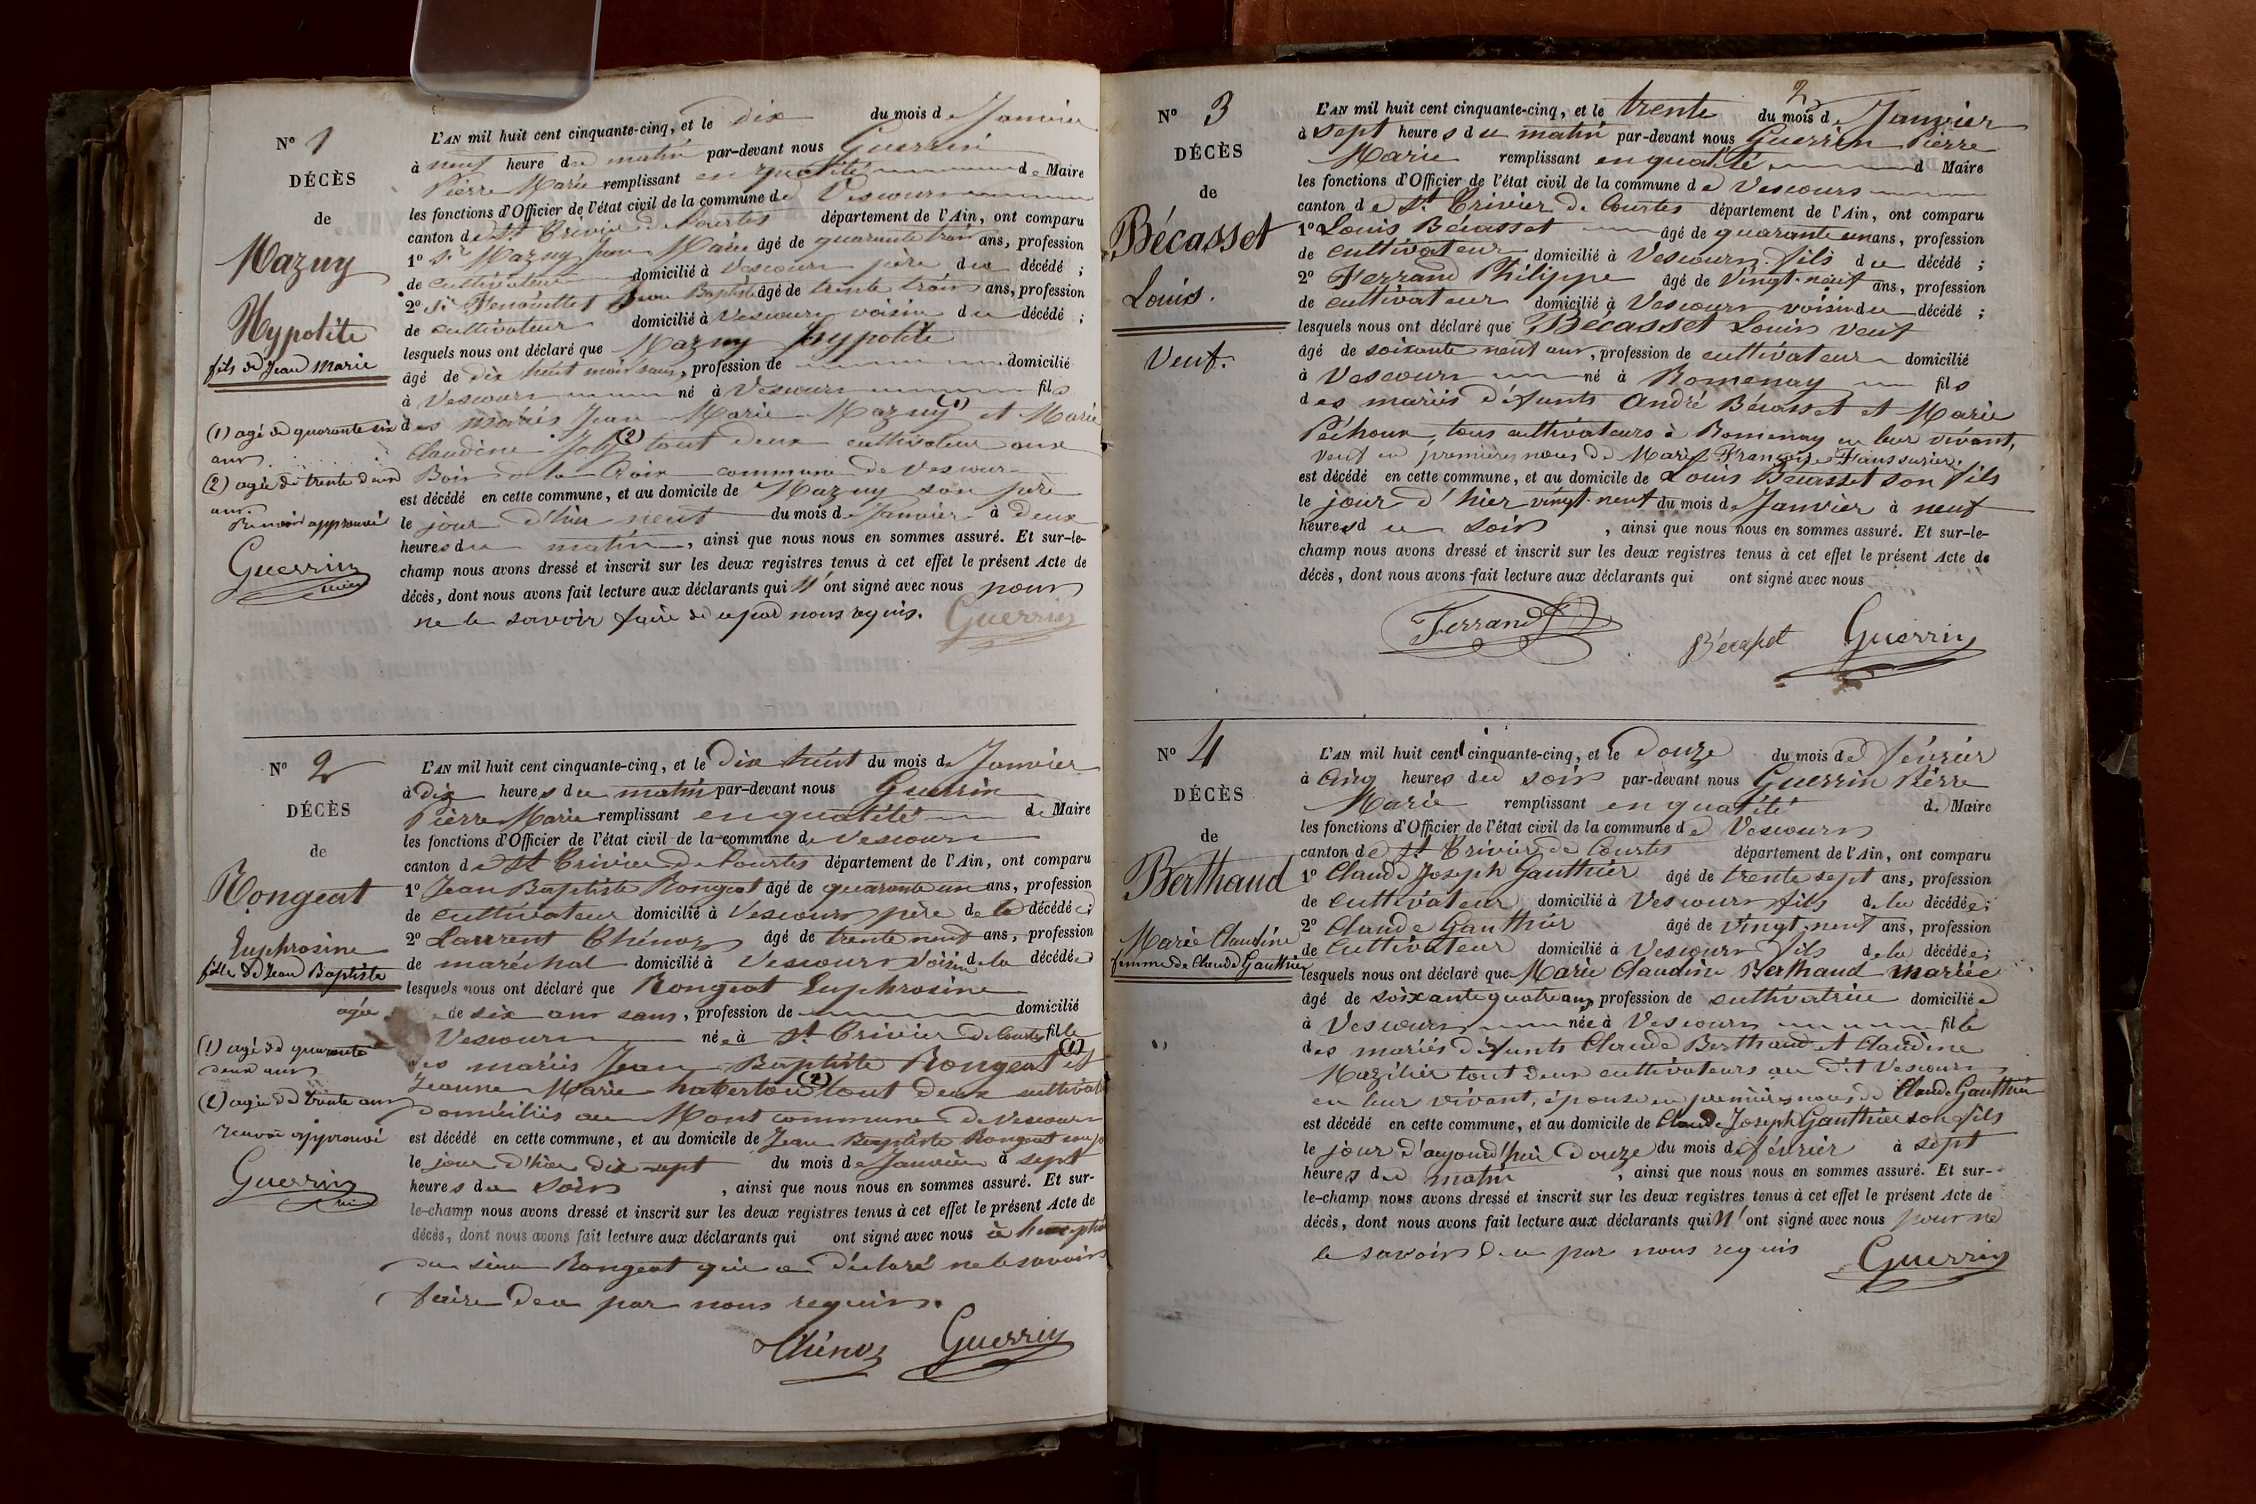 N° 1
DÉCÈS
de
Mazuy
Hypolite
fils de Jean Marie
(1) agé de quarante six
ans
(2) agée de trente deux
ans
Renvoi approuvé
Guerrin
L'AN mil huit cent cinquante-cinq, et le dix du mois de Janvier
à neuf heure du matin par-devant nous Guerrin
Pierre Marie remplissant en qualité de Maire
les fonctions d'Officier de l'état civil de la commune de Vescours
canton de St Trivier de Courtes département de l'Ain, ont comparu
1° Sr Mazuy Jean Marie âgé de quarante trois ans, profession
de cultivateur domicilié à Vescours père du décédé ;
2° Sr Jean Baptiste âgé de trente trois ans, profession
de cultivateur domicilié à Vescours voisin du décédé ;
lesquels nous ont déclaré que Mazuy hypolite
âgé de dix huit mois sans, profession de domicilié
à Vescours né à Vescours fils
des mariés Jean Marie Mazuy (1) et Marie
Claudine Joly (2) tout deux cultivateur aux
Bois de la Croix commune de Vescours
est décédé en cette commune, et au domicile de Mazuy son père
le jour d'hier neuf du mois de Janvier à deux
heures du matin, ainsi que nous nous en sommes assuré. Et sur-le-
champ nous avons dressé et inscrit sur les deux registres tenus à cet effet le présent Acte de
décès, dont nous avons fait lecture aux déclarants qui N'ont signé avec nous pour
ne le savoir faire de ce par nous requis. Guerrin
N° 2
DÉCÈS
de
Rongeat
Euphrosine
fille de Jean Baptiste
agée
(1) agé de quarante
deux ans
(2) agée de trente ans
renvoi approuvé
Guerrin
L'AN mil huit cent cinquante-cinq, et le dix huit du mois de Janvier
à dix heures du matin par-devant nous Guerrin
Pierre Marie remplissant en qualité de Maire
les fonctions d'Officier de l'état civil de la commune de Vescours
canton de St Trivier de Courtes département de l'Ain, ont comparu
1° Jean Baptiste Rongeat âgé de quarante un ans, profession
de cultivateur domicilié à Vescours père de la décédée ;
2° Laurent Chénoz âgé de trente neuf ans, profession
de maréchal domicilié à Vescours voisin de la décédée
lesquels nous ont déclaré que Rongeat Euphrosine
de six ans sans, profession de domicilié
Vescours née à St Trivier de Courtes fille
des mariés Jean Baptiste Rongeat (1) et
Jeanne Marie (2) tout deux cultivat
domiciliés au Mont commune de Vescours
est décédé en cette commune, et au domicile de Jean Baptiste Rongeat
le jour d'hier dix sept du mois de Janvier à sept
heures du soir, ainsi que nous nous en sommes assuré. Et sur-
le-champ nous avons dressé et inscrit sur les deux registres tenus à cet effet le présent Acte de
décès, dont nous avons fait lecture aux déclarants qui ont signé avec nous
du sieur Rongeat qui a déclaré ne le savoir
faire de ce par nous requis.
Chénoz Guerrin
2
N° 3
DÉCÈS
de
Bécasset
Louis.
Veuf.
L'AN mil huit cent cinquante-cinq, et le trente du mois de Janvier
à sept heures du matin par-devant nous Guerrin Pierre
Marie remplissant en qualité d Maire
les fonctions d'Officier de l'état civil de la commune de Vescours
canton de St Trivier de Courtes département de l'Ain, ont comparu
1° Louis Bécasset âgé de quarante un ans, profession
de cultivateur domicilié à Vescours fils du décédé ;
2° Ferrand Philippe âgé de vingt-neuf ans, profession
de cultivateur domicilié à Vescours voisin du décédé ;
lesquels nous ont déclaré que Bécasset Louis veuf
âgé de soixante neuf ans, profession de cultivateur domicilié
à Vescours né à Romenay fils
des mariés défunts André Bécasset et Marie
Péchoux, tous cultivateurs à Romenay en leur vivant,
veuf en premières noces de Marie Françoise
est décédé en cette commune, et au domicile de Louis Bécasset son fils
le jour d'hier vingt-neuf du mois de Janvier à neuf
heures du soir, ainsi que nous nous en sommes assuré. Et sur-le-
champ nous avons dressé et inscrit sur les deux registres tenus à cet effet le présent Acte de
décès, dont nous avons fait lecture aux déclarants qui ont signé avec nous
Ferrand Bécasset Guerrin
N° 4
DÉCÈS
de
Berthaud
Marie Claudine
femme de Claude Gauthier
L'AN mil huit cent cinquante-cinq, et le douze du mois de février
à cinq heures du soir par-devant nous Guerrin Pierre
Marie remplissant en qualité de Maire
les fonctions d'Officier de l'état civil de la commune de Vescours
canton de St Trivier de Courtes département de l'Ain, ont comparu
1° Claude Joseph Gauthier âgé de trente sept ans, profession
de cultivateur domicilié à Vescours fils de la décédée ;
2° Claude Gauthier âgé de vingt-neuf ans, profession
de cultivateur domicilié à Vescours fils de la décédée ;
lesquels nous ont déclaré que Marie Claudine Berthaud mariée
âgé de soixante quatre ans, profession de cultivatrice domiciliée
à Vescours née à Vescours fille
des mariés défunts Claude Berthaud et Claudine
tout deux cultivateurs au dit Vescours
en leur vivant, épouse en premières noces de Claude Gauthier
est décédé en cette commune, et au domicile de Claude Joseph Gauthier son fils
le jour d'aujourd'hui douze du mois de février à sept
heures du matin, ainsi que nous nous en sommes assuré. Et sur-
le-champ nous avons dressé et inscrit sur les deux registres tenus à cet effet le présent Acte de
décès, dont nous avons fait lecture aux déclarants qui N'ont signé avec nous pour ne
le savoir de ce par nous requis Guerrin